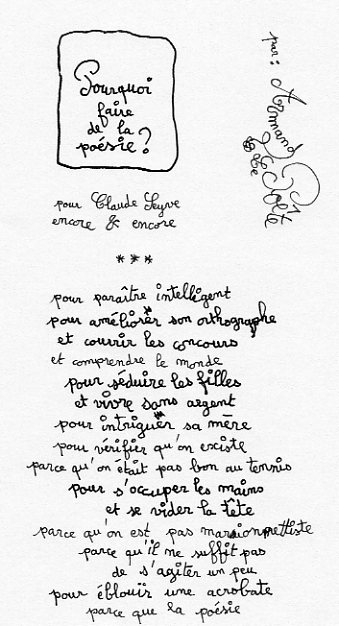 Pourquoi
faire
de la
poésie?
par: Armand
le Poête
pour Claude Seyve
encore & encore
***
pour paraître intelligent
pour améliorer son orthographe
et courrir les concours
et comprendre le monde
pour séduire les filles
et vivre sans argent
pour intriguer sa mère
pour vérifier qu'on existe
parce qu'on était pas bon au tennis
pour s'occuper les mains
et se vider la tête
parce qu'on est pas marionnettiste
parce qu'il ne suffit pas
de s'agiter un peu
pour éblouïr une acrobate
parce que la poésie